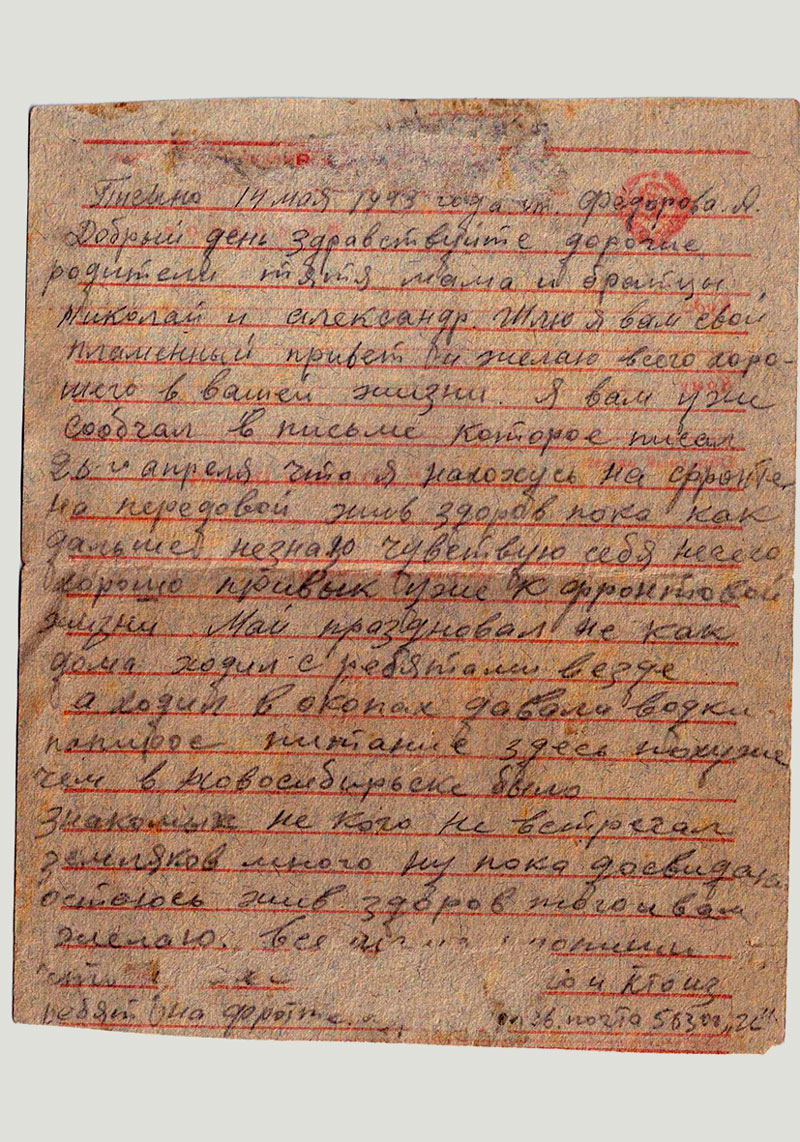 Письмо 14 мая 1943 года от Федорова А.
Добрый день здравствуйте дорогие
родители тятя мама и братцы
Николай и Александр. Шлю я вам свой
пламенный привет и желаю всего хоро-
шего в вашей жизни. Я вам уже
сообчал в письме которое писал
26 и апреля что я нахожусь на фронте.
на передовой жив здоров пока как
дальше незнаю чувствую себя нечего
хорошо привык уже к фронтовой
жизни Май праздновал не как
дома ходил с ребятами везде
а ходил в окопах давали водки
папирос питание здесь похуже
чем в Новосибирьске было
знакомых не кого не встречал
земляков много ну пока досвидания
остаюсь жив здоров того и вам
желаю. Все
и кто из
ребят на фронте. почта 56302 „Ж“